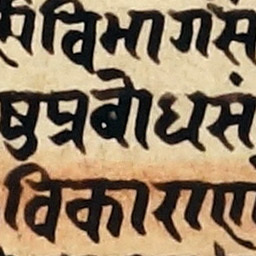 संविभागसं
षुप्रबोधसं
विकाराण